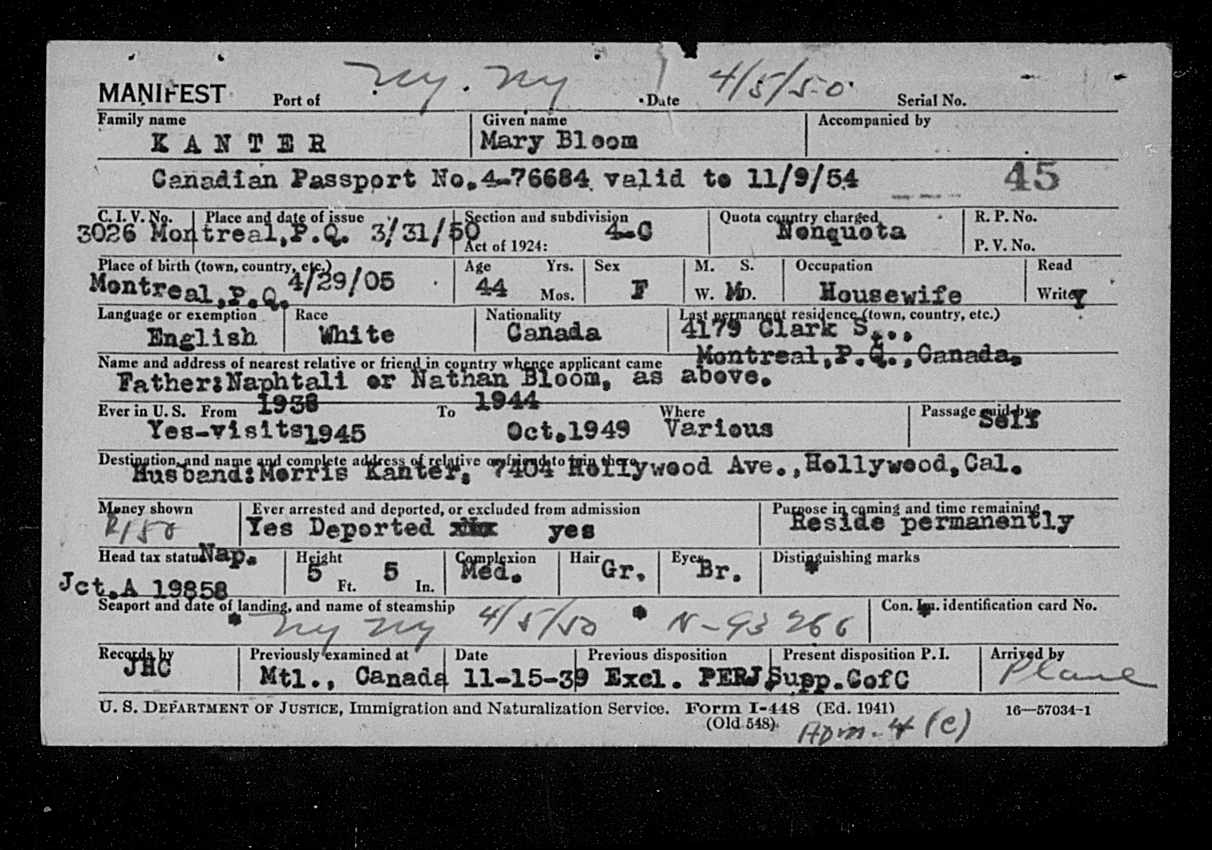 MANIFEST Port of NY. NY Date 4/5/50 Serial No.
Family name Given name Accompanied by
KANTER Mary Bloom
Canadian Passport No.4-76684 valid to 11/9/54 45
C. I. V. No. Place and date of issue Section and subdivision Quota country charged R. P. No.
3026 Montreal,P.Q. 3/31/50 4-C Nonquota
Act of 1924: P. V. No.
Place of birth (town, country, etc.) Age Yrs. Sex M. S. Occupation Read
Montreal,P.Q. 4/29/05 44 F M Housewife Y
Mos. W. D. Write
Language or exemption Race Nationality Last permanent residence (town, country, etc.)
English White Canada 4179 Clark St.,
Montreal,P.Q.,Canada.
Name and address of nearest relative or friend in country whence applicant came
Father:Naphtali or Nathan Bloom, as above.
1938 1944
Ever in U. S. From To Where Passage paid by
Yes-visits1945 Oct.1949 Various Self
Destination, and name and complete address of relative or friend to join there
Husband:Morris Kanter, 7404 Hollywood Ave.,Hollywood,Cal.
Money shown Ever arrested and deported, or excluded from admission Purpose in coming and time remaining
Yes Deported yes Reside permanently
Head tax status Nap. Height Complexion Hair Eyes Distinguishing marks
5 Ft. 5 In. Med. Gr. Br.
Jct.A 19858
Seaport and date of landing, and name of steamship Con. Im. identification card No.
NY NY 4/5/50 N-93266
Records by Previously examined at Date Previous disposition Present disposition P. I. Arrived by
JHC Mtl., Canada 11-15-39 Excl. PERJ Supp.CofC Plane
U. S. DEPARTMENT OF JUSTICE, Immigration and Naturalization Service. Form I-448 (Ed. 1941) 16—57034-1
(Old 548). Adm. 4 (C)